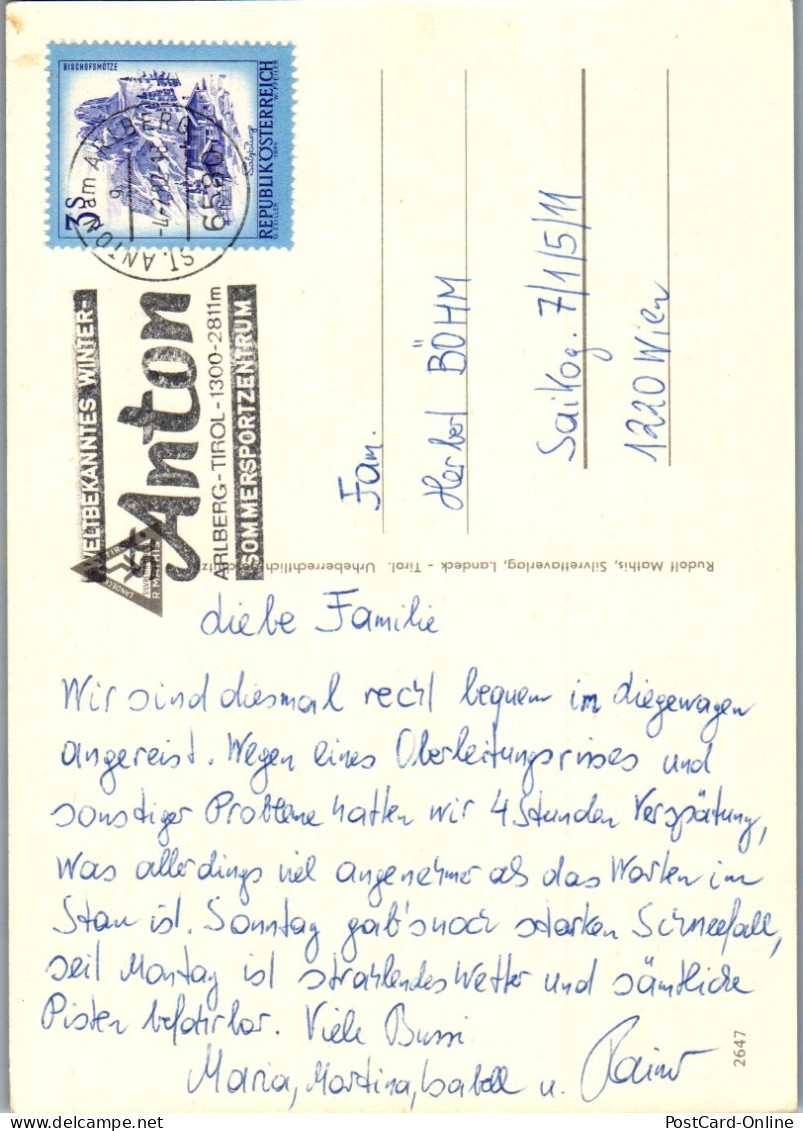 BISCHOFSMÜTZE
3S
REPUBLIK ÖSTERREICH
ST. ANTON am ARLBERG
6580
WELTBEKANNTES WINTER-
St. Anton
ARLBERG-TIROL-1300-2811m
SOMMERSPORTZENTRUM
Fam.
Herbert BÖHM
Saikog. 7/1/5/11
1220 Wien
Rudolf Mathis, Silvrettaverlag, Landeck - Tirol. Urheberrechtlich
Liebe Familie
Wir sind diesmal recht bequem im Liegewagen
angereist. Wegen eines Oberleitungsrisses und
sonstiger Probleme hatten wir 4 Stunden Verspätung,
Was allerdings viel angenehmer als das Warten im
Stau ist. Sonntag gab's noch starken Schneefall,
seit Montag ist strahlendes Wetter und sämtliche
Pisten befahrbar. Viele Bussi
Maria, Martina, Isabell u. Rainer
2647
PostCard-Online
PostCard-Online